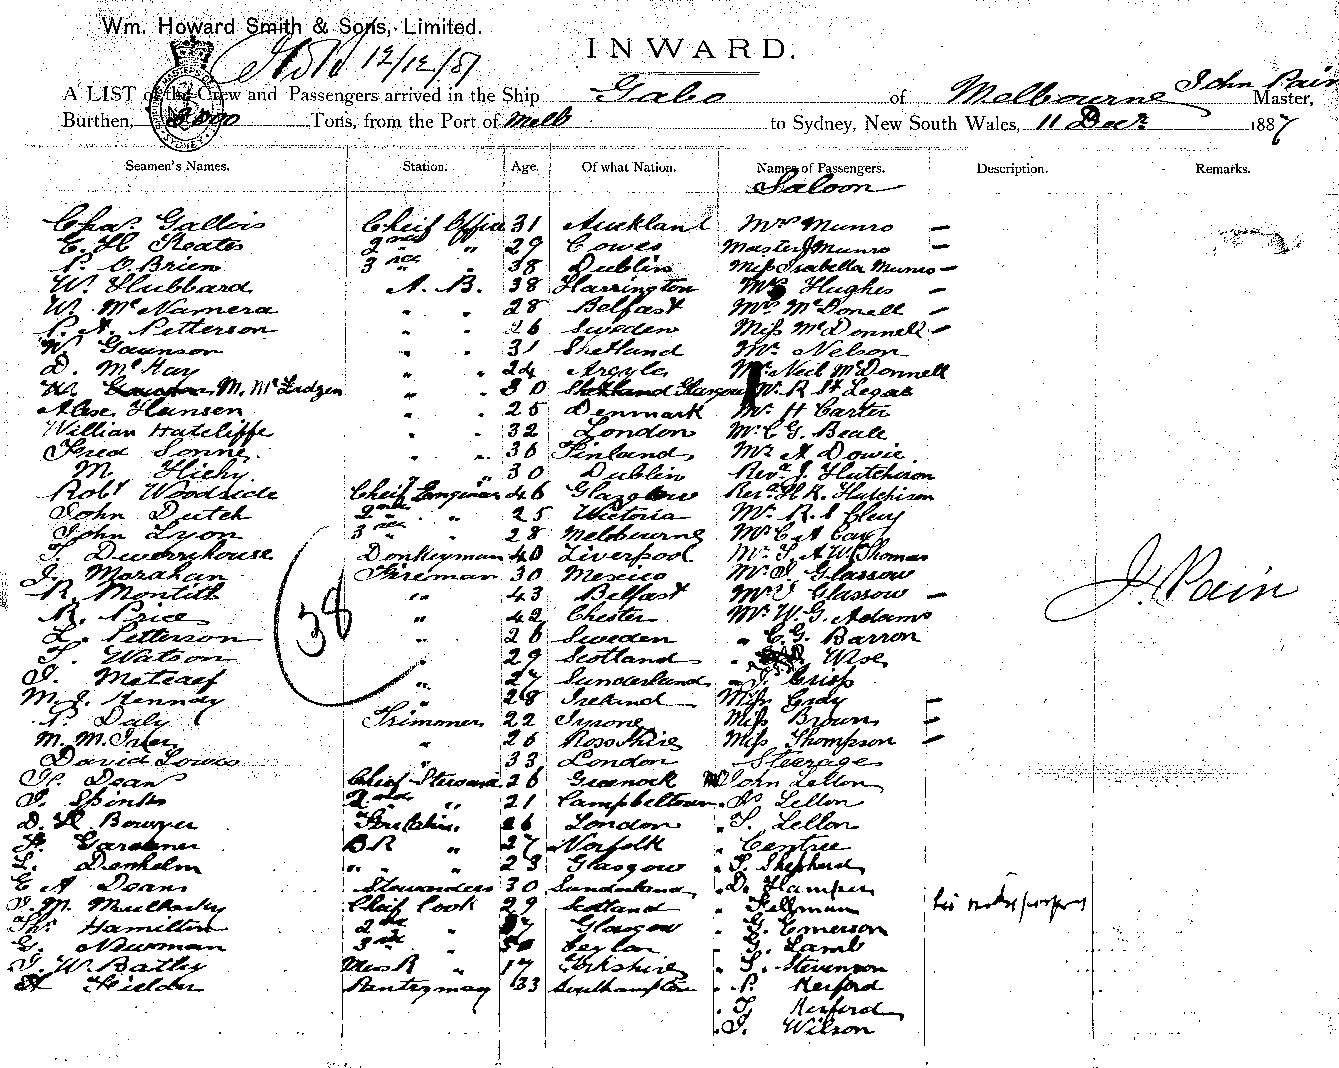 Wm. Howard Smith & Sons, Limited.
12/12/87
INWARD.
A LIST of the Crew and Passengers arrived in the Ship Gabo of Melbourne John Pain Master,
Burthen, 2000 Tons, from the Port of Melb to Sydney, New South Wales, 11 Decr 1887
Seamen's Names. Station. Age. Of what Nation. Names of Passengers. Description. Remarks.
Saloon
Chas. Gallois Cheif Officer 31 Auckland Mrs Munro —
E. H. Keates 2nd " 29 Cowes Master J Munro —
P. O Brien 3rd " 38 Dublin Miss Isabella Munro —
W. Hubbard A. B. 38 Harrington Hughes —
W. McNamera " " 28 Belfast Mrs McDonell —
P. A. Petterson " " 26 Sweden Miss McDonnell —
W Gaunson " " 31 Shetland Mr. Nelson
D. McKay " " 24 Argyle Mr Neil McDonnell
M. McFadgen " " 30 Shetland Glasgow Mr. R St Legar
Alex Hansen " " 25 Denmark Mr. H Carter
Willian Hatcliffe " " 32 London Mr. C G. Beale
Fred Sonne " " 36 Finland Mr A Dowie
M Hichy " " 30 Dublin Revd J. Hutchison
Robt Woodside Cheif Enginer 46 Glazgow Revd H. R. Hutchison
John Dutch 2nd " 25 Victoria Mr. R. S Clery
John Lyon 3rd " 28 Melbourne Mr C A Cay
T. Dwerryhouse Donkeyman 40 Liverpool Mr. T. A W Thomas
J. Morahan Fireman 30 Mexico Mr J Glassow
R. Montith " 43 Belfast Glassow —
R. Price " 42 Chester Mr W. G. Adams
L. Petterson " 26 Sweden " C. G. Barron
T. Watson " 29 Scotland " Wise
J. Metcaef " 27 Sunderland " J. Crisp
M. J. Kenndy " 28 Ireland Miss Gray —
P. Daly Trimmer 22 Tyrone Miss Brown —
M. " 26 Ross Shire Miss Thompson —
David Lowis 33 London Steerage
J. Dean Chief Steward 26 Greenock John Lellon
J. Spinks 2nd " 21 Campbeltown Lellon
D. H Bowyer Fore Cabin 26 London T. Lellon
Gardener B R " 27 Norfolk Centree
Denholm " " 23 Glasgow T. Shepherd
E A Deans Stewardess 30 Sunderland D. Hamper
J. M. Mulharky Cheif Cook 29 Scotland Fellman
Thos Hamilton 2nd " 27 Glasgow G. Emerson
G. Newman 3rd " Ceylon G. Lamb
J. W. Batley Mess R " 17 Yorkshire S. Stevenson
A Fielder Pantryman 33 Southampton P. Hexford
T. Hexford
J. Wilson
38
J. Pain